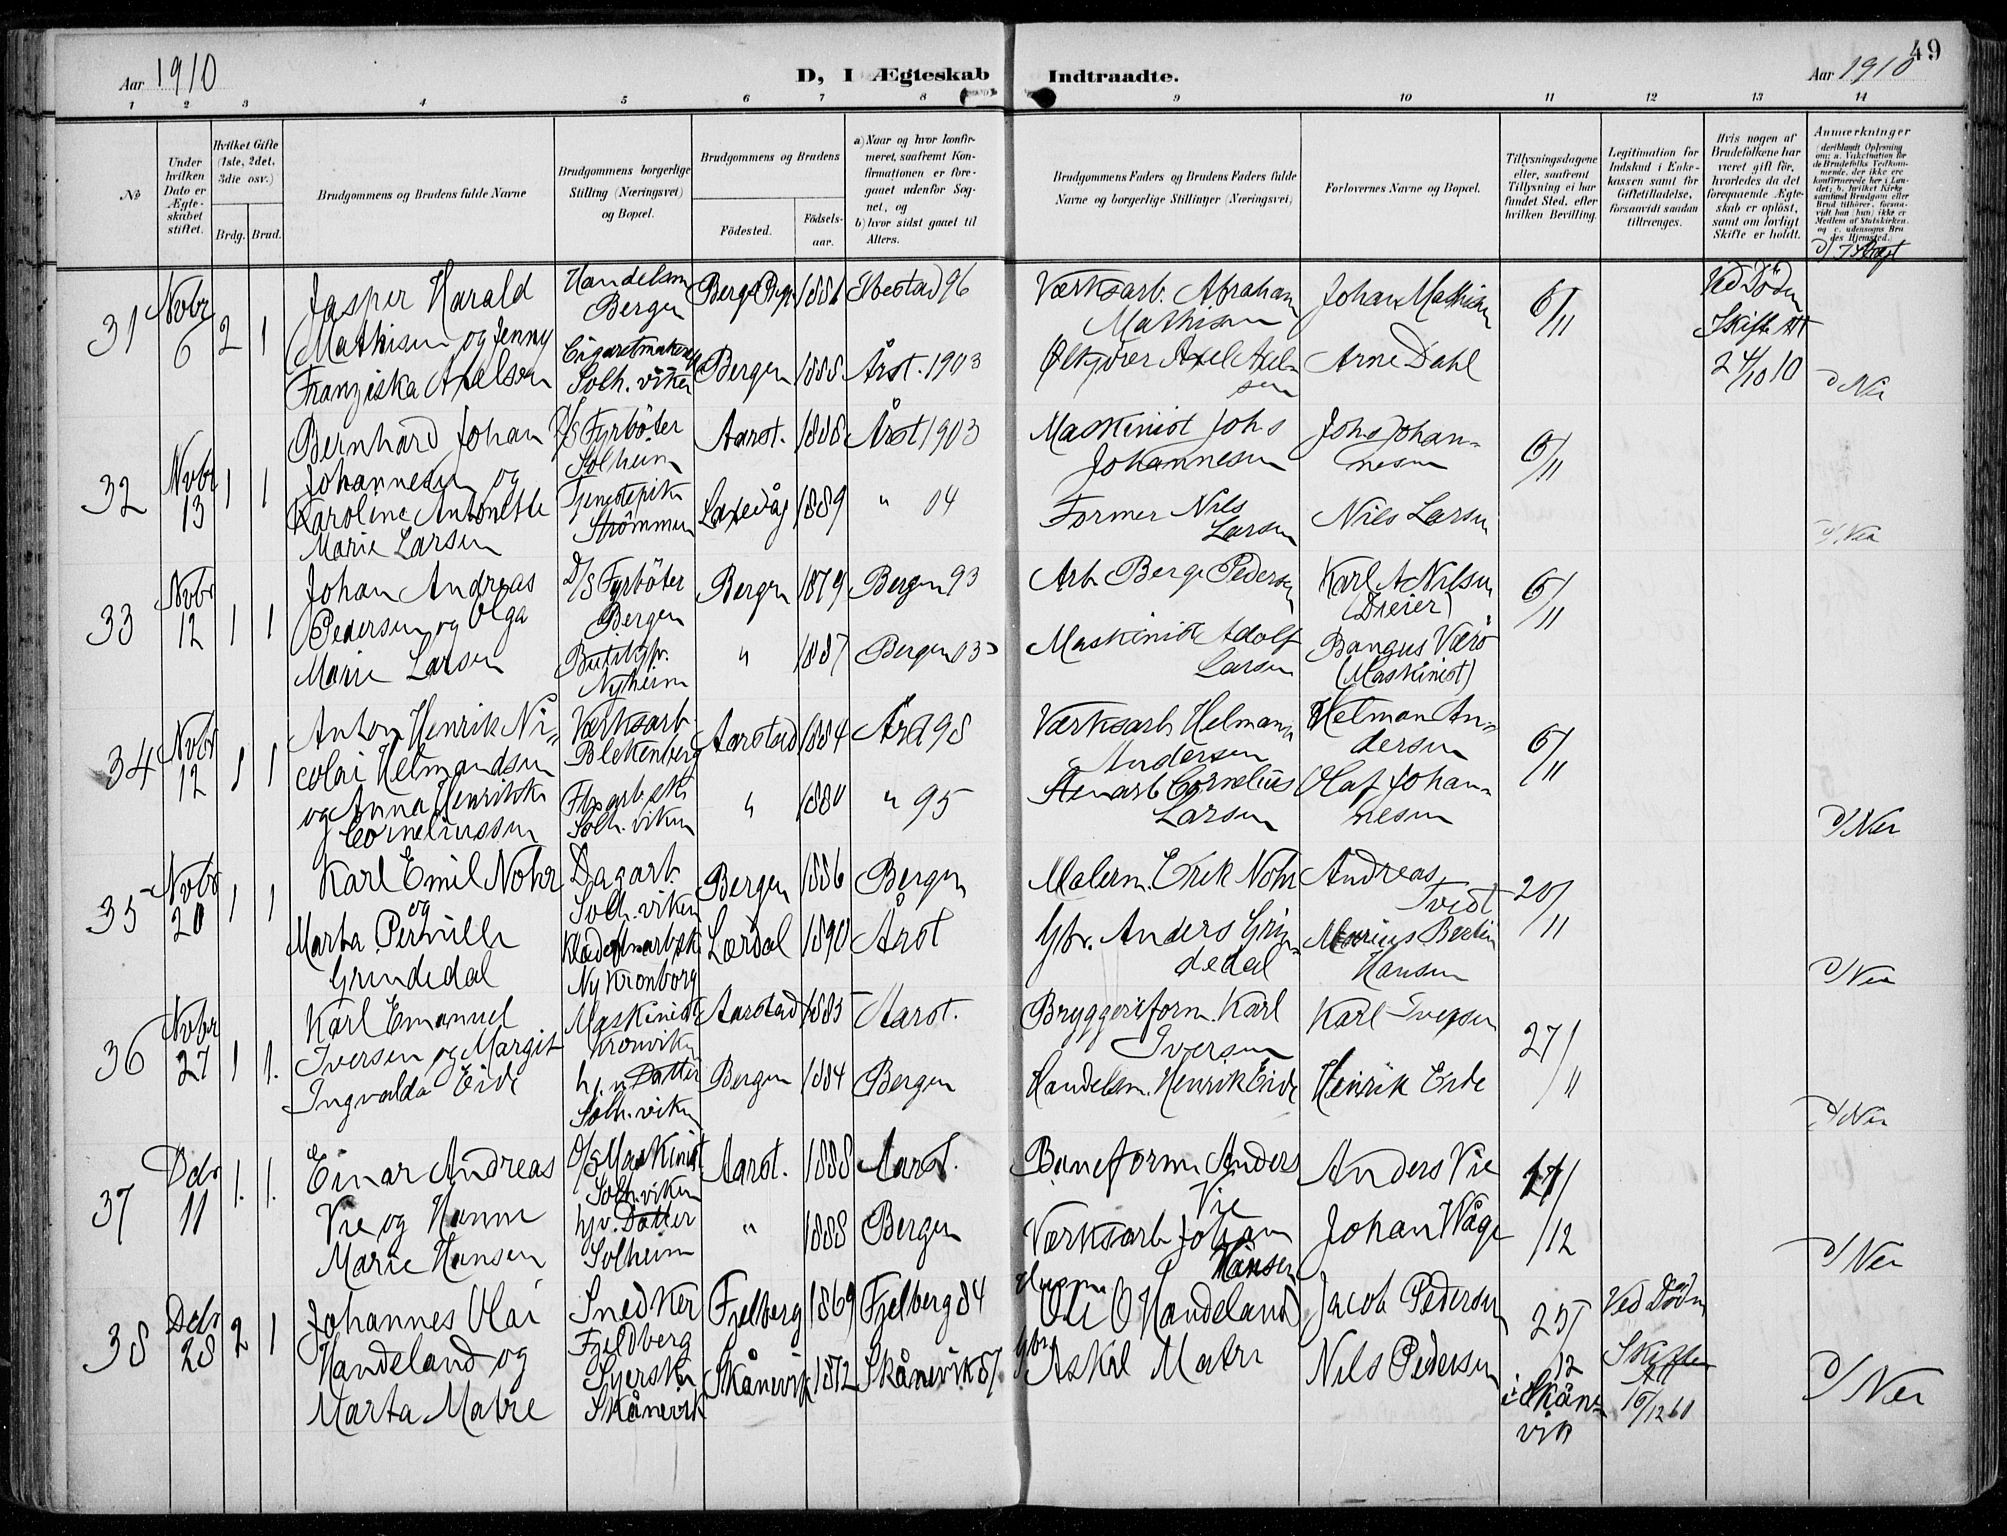 Aar 1910
D, I Ægteskab Indtraadte.
Aar 1910
49
1 2 3 4 5 6 7 8 9 10 11 12 13 14
№
Under hvilken Dato er Ægteskabet stiftet.
Hvilket Gifte (1ste, 2det, 3die osv.)
Brdg. Brud.
Brudgommens og Brudens fulde Navne
Brudgommens borgerlige Stilling (Næringsvei) og Bopæl.
Brudgommens og Brudens
Fødested.
Fødselsaar.
a) Naar og hvor konfirmeret, saafremt Konfirmationen er foregaaet udenfor Sognet, og
b) hvor sidst gaaet til Alters.
Brudgommens Faders og Brudens Faders fulde Navne og borgerlige Stillinger (Næringsvei)
Forlovernes Navne og Bopæl.
Tillysningsdagene eller, saafremt Tillysning ei har fundet Sted, efter hvilken Bevilling.
Legitimation for Indskud i Enkekassen samt for Giftetilladelse, forsaavidt saadan tiltrænges.
Hvis nogen af Brudefolkene har været gift før, hvorledes da det foregaaende Ægteskab er opløst, samt om lovligt Skifte er holdt.
Anmærkninger
(deriblandt Oplysning om: a. Vakcination for de Brudefolks Vedkommende, der ikke ere konfirmerede her i Landet; b. hvilket Kirkesamfund Brudgom eller Brud tilhører, forsaavidt han (hun) ikke er Medlem af Statskirken. og c. udensogns Brudes Hjemsted.)
31 Novbr 6 2 1
Jasper Harald
Mathisen og Jenny
Franziska Axelsen
Handelsm
Bergen
Solh. viken
1886 Ibestad 96
Bergen 1888 Årst. 1903
Værksarb. Abraham
Mathisen
Axel Axelsen
Johan Mathisen
Arne Dahl
6/11
Ved Döden
Skifte Att
24/10 10
d/ Nei
32 Novbr 13 1 1
Bernhard Johan
Johannesen og
Karoline Antonette
Marie Larsen
D/S Fyrböter
Solheim
Tjenestepik
Strömmen
Aarst. 1888 Årst 1903
Laxevåg 1889 " 04
Maskinist Johs
Johannesen
Former Nils
Larsen
Johs Johannesen
Nils Larsen
6/11
d/ Nei
33 Novbr 12 1 1
Johan Andreas
Pedersen og Olga
Marie Larsen
D/S Fyrböter
Bergen
Nyheim
Bergen 1879 Bergen 93
" 1887 Bergen 03
Arb Berge Pedersen
Maskinist Adolf
Larsen
Karl A Nilsen
(Dreier)
Værö
(Maskinist)
6/11
34 Novbr 12 1 1
Anton Henrik Nicolai Helmandsen
og Anna Henrikke
Corneliussen
Værksarb
Blekenberg
Solh. viken
Aarstad 1884 Årst 98
" 1880 " 95
Værksarb Helman
Andersen
Stenarb Cornelius
Larsen
Helman Andersen
Olaf Johannesen
6/11
d/ Nei
35 Novbr 20 1 1
Karl Emil Nohr
og
Marta Pernille
Grindedal
Dagarb.
Solh. viken
Ny Kronborg
Bergen 1886 Bergen
Lærdal 1890 Årst
Malerm. Erik Nohr
Gbr. Anders Grindedal
Andreas
Tvedt
Marius Bertin
Hansen
20/11
d/ Nei
36 Novbr 27 1 1.
Karl Emanuel
Iversen og Margit
Ingvalda Eide
Maskinist
Kronviken
hj. v. Datter
Solh. viken
Aarstad 1885 Aarst.
Bergen 1884 Bergen
Bryggeriform. Karl
Iversen
Handelsm. Henrik Eide
Karl Iversen
Henrik Eide
27/11
d/ Nei
37 Debr 11 1. 1.
Einar Andreas
Vie og Hanne
Marie Hansen
D/S Maskinist
Solh. viken
hjv. Datter
Solheim
Aarst. 1888 Aarst.
" 1888 Bergen
Baneform Anders
Vie
Værksarb Johan
Hansen
Anders Vie
Johan Wåge
11/12
d/ Nei
38 Debr 28 2 1
Johannes Olai
Handeland og
Marta Matre
Snedker
Fjeldberg
Syerske
Skånevik
Fjelberg 1869 Fjelberg 84
Skånevik 1872 Skånevik 87
Ole O Handeland
Gbr Askil Matre
Jacob Pedersen
Nils Pedersen
25/12
i Skånevik
Ved Döden
Skifte
Att
d/ Nei